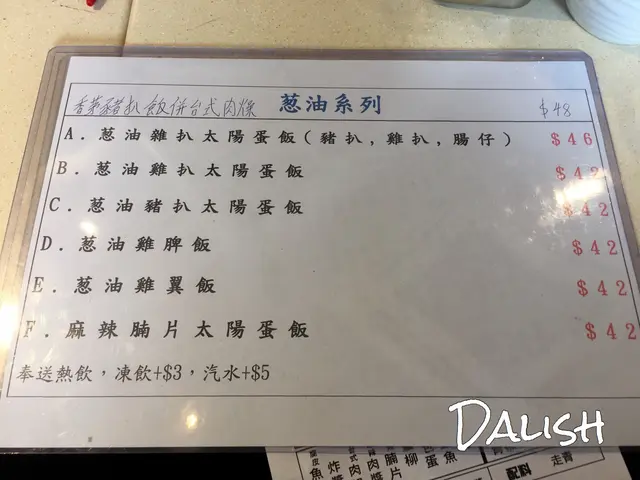 香茅豬扒飯併台式肉燥 葱油系列 $48
A.葱油雜扒太陽蛋飯(豬扒,雞扒,腸仔) $46
B.葱油雞扒太陽蛋飯 $42
C.葱油豬扒太陽蛋飯 $42
D.葱油雞脾飯 $42
E.葱油雞翼飯 $42
F.麻辣腩片太陽蛋飯 $42
奉送熱飲,凍飲+$3,汽水+$5
DALISH
配料 走青